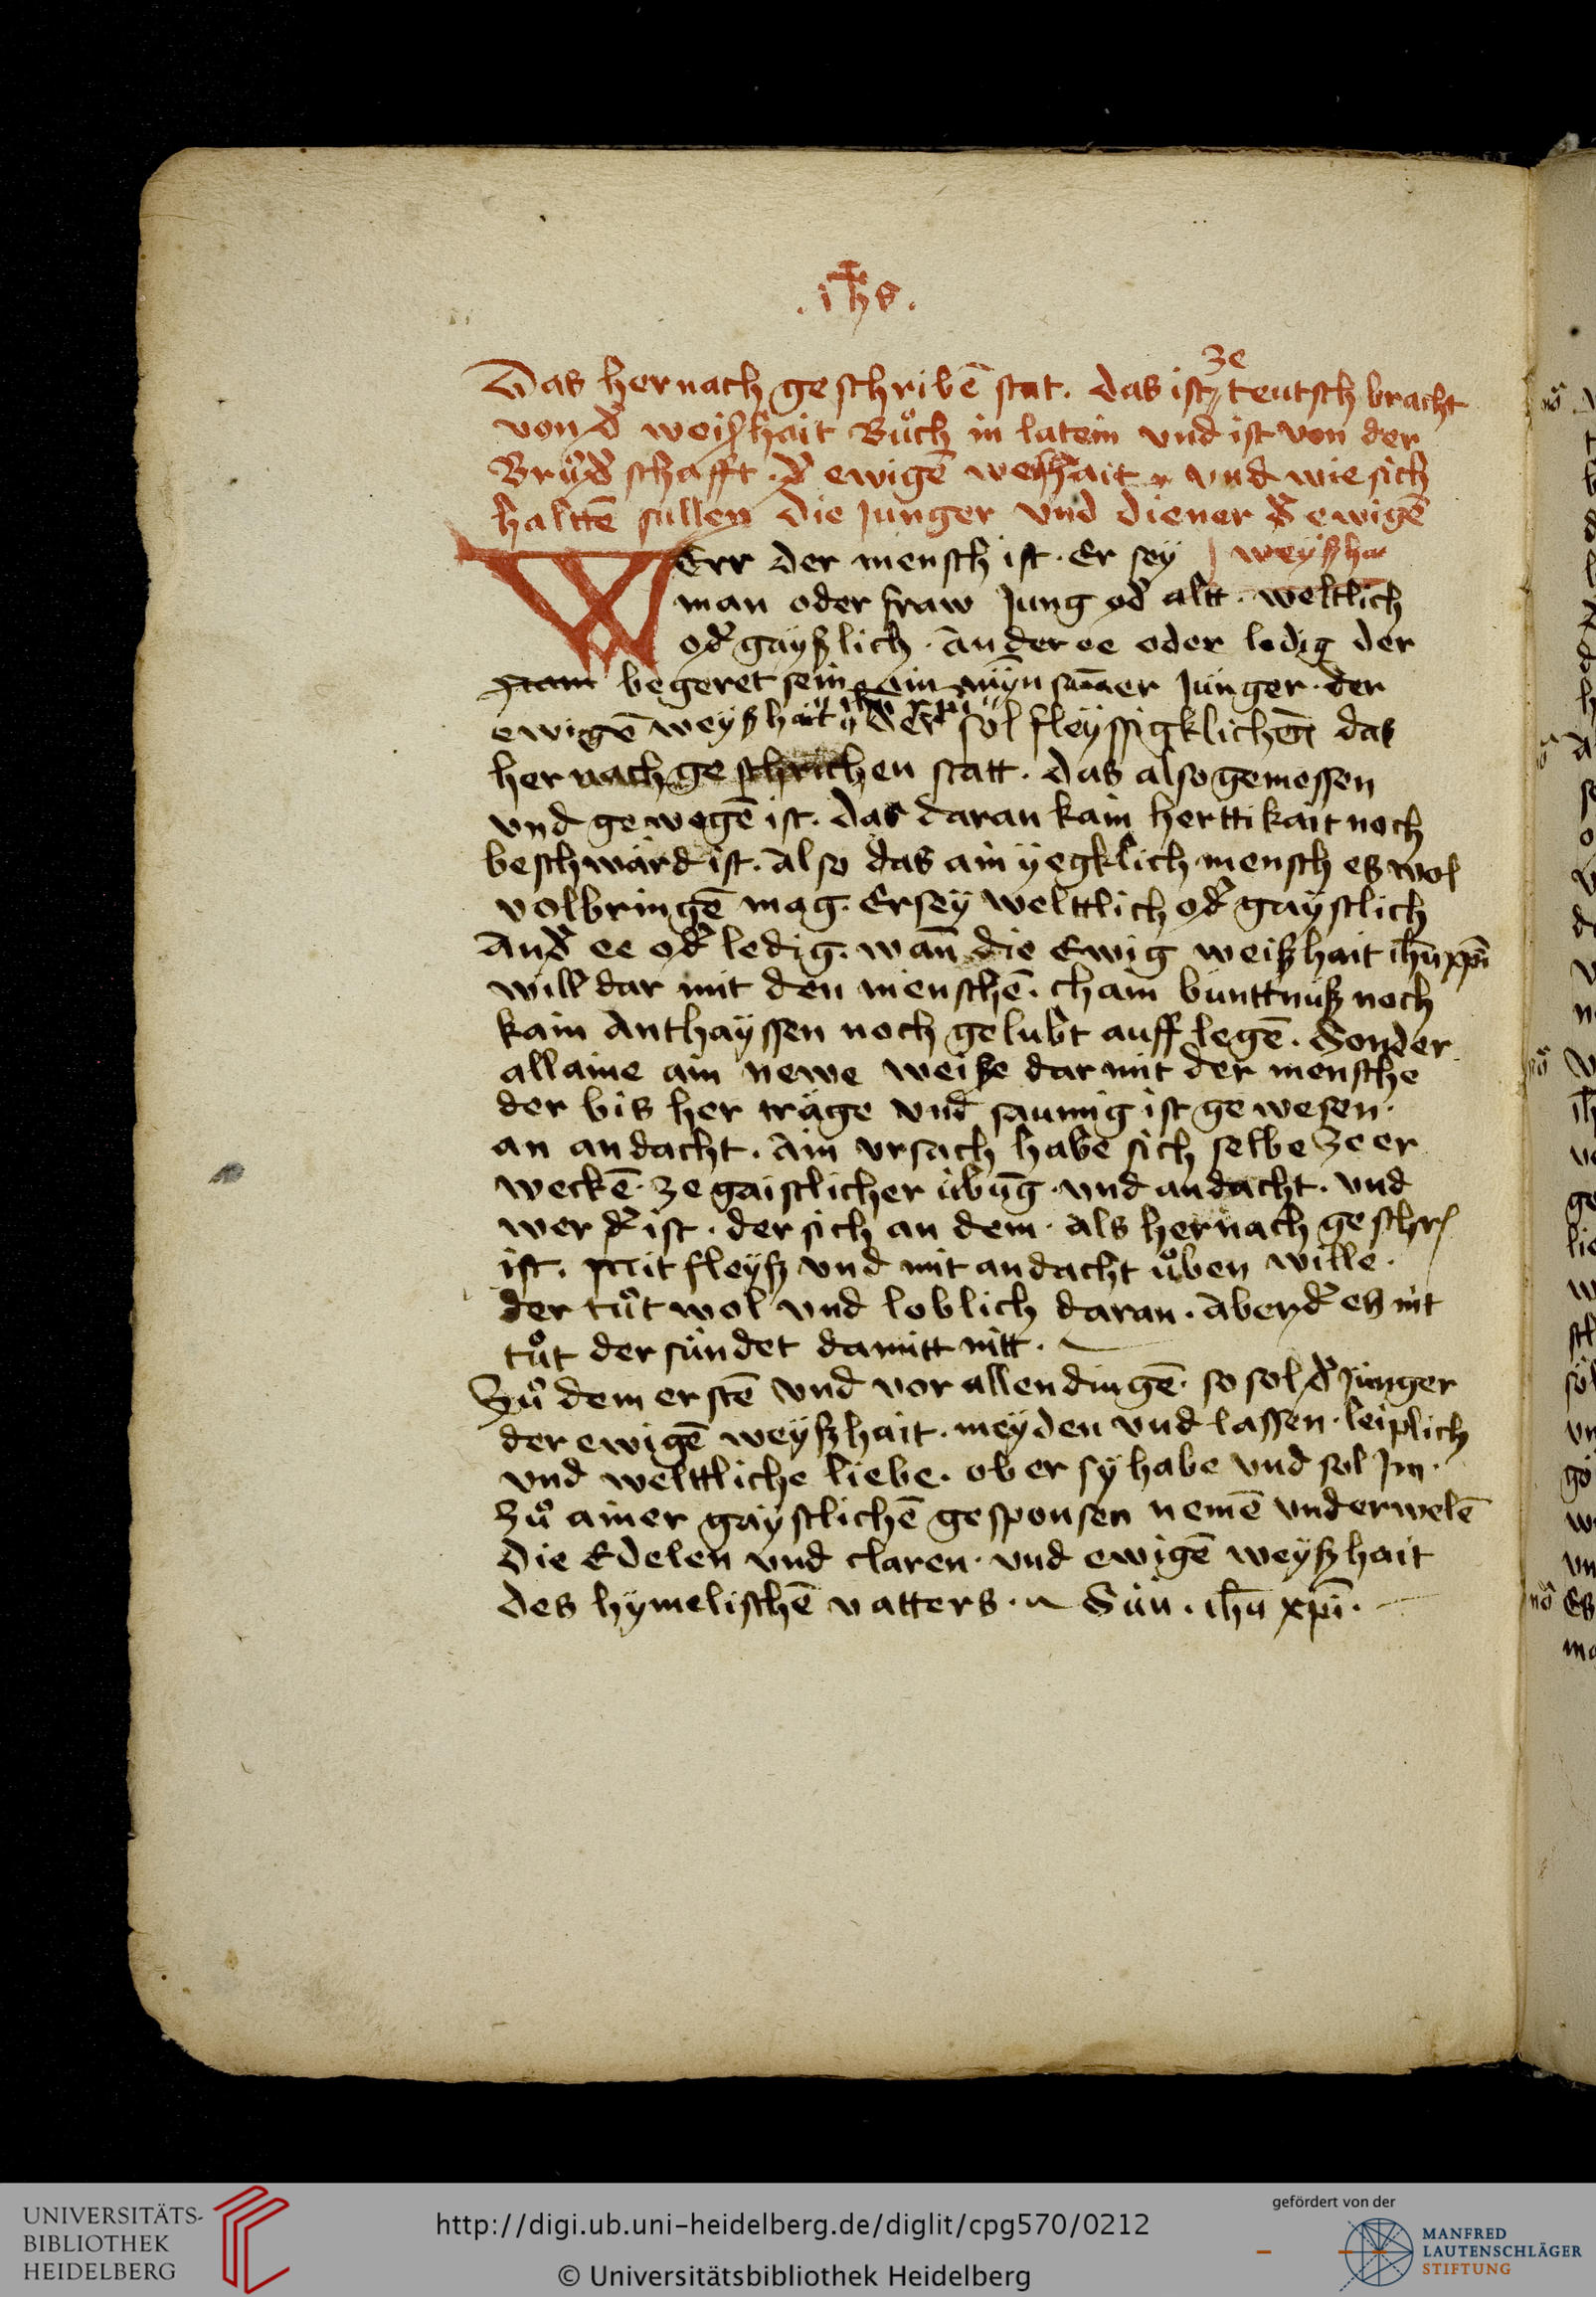 . ihs .
ze
Das hernach geschribē stat . das ist teutsch bracht
von d̄ weißhait Bůch in latein vnd ist von der
Brůd̄schafft . d̄ ewigē weißhait vnd wie sich
haltē sullen die Junger vnd diener d̄ ewigē
WErr der mensch ist . Er sey weyßha
man oder fraw Jung od̄ altt . weltlich
od̄ gayßlich . An der ee oder ledig der
begeret sein ain mÿnsam̄er Junger . der
ihū xpi
ewigē weyßhait der sol fleyssigklichen das
hernach geschrichen statt . das also gemessen
vnd gewegē ist . das daran kain herttikait noch
beschwärd ist . Also das ain yegklich mensch es wol
volbringē mag . Er sey welttlich od̄ gaystlich
An d̄ ee od̄ ledig . wan̄ die Ewig weißhait ihū xp̄i
will dar mit den menschē . chain bunttnuß noch
kain Anthayssen noch gelubt auff legē . Sonder
allaine ain newe weise dar mit der mensche
der bis her träge vnd saumig ist gewesen .
an andacht . Ain vrsach habe sich selbe ze er
weckē . ze gaistlicher übūg . vnd andacht . vnd
wer d̄ ist . der sich an dem . als hernach geschr
ist . Mit fleyß vnd mit andacht ůben wille .
der tůt wol vnd loblich daran . Aber d̄ eß nit
tůt der sündet damitt nitt .
Zů dem erstē vnd vor allen dingē . so sol d̄ Jünger
der ewigē weyßhait . meyden vnd lassen . leiplich
vnd welttliche liebe . ob er sy habe vnd sol Jm .
Zů ainer gaystlichē gesponsen nemē vnd erwelē
Die Edelen vnd claren . vnd ewigē weyßhait
des hymelischē vatters . Sun . ihū xp̄i .
UNIVERSITÄTS-
BIBLIOTHEK
HEIDELBERG
http://digi.ub.uni-heidelberg.de/diglit/cpg570/0212
© Universitätsbibliothek Heidelberg
gefördert von der
MANFRED
LAUTENSCHLÄGER
STIFTUNG